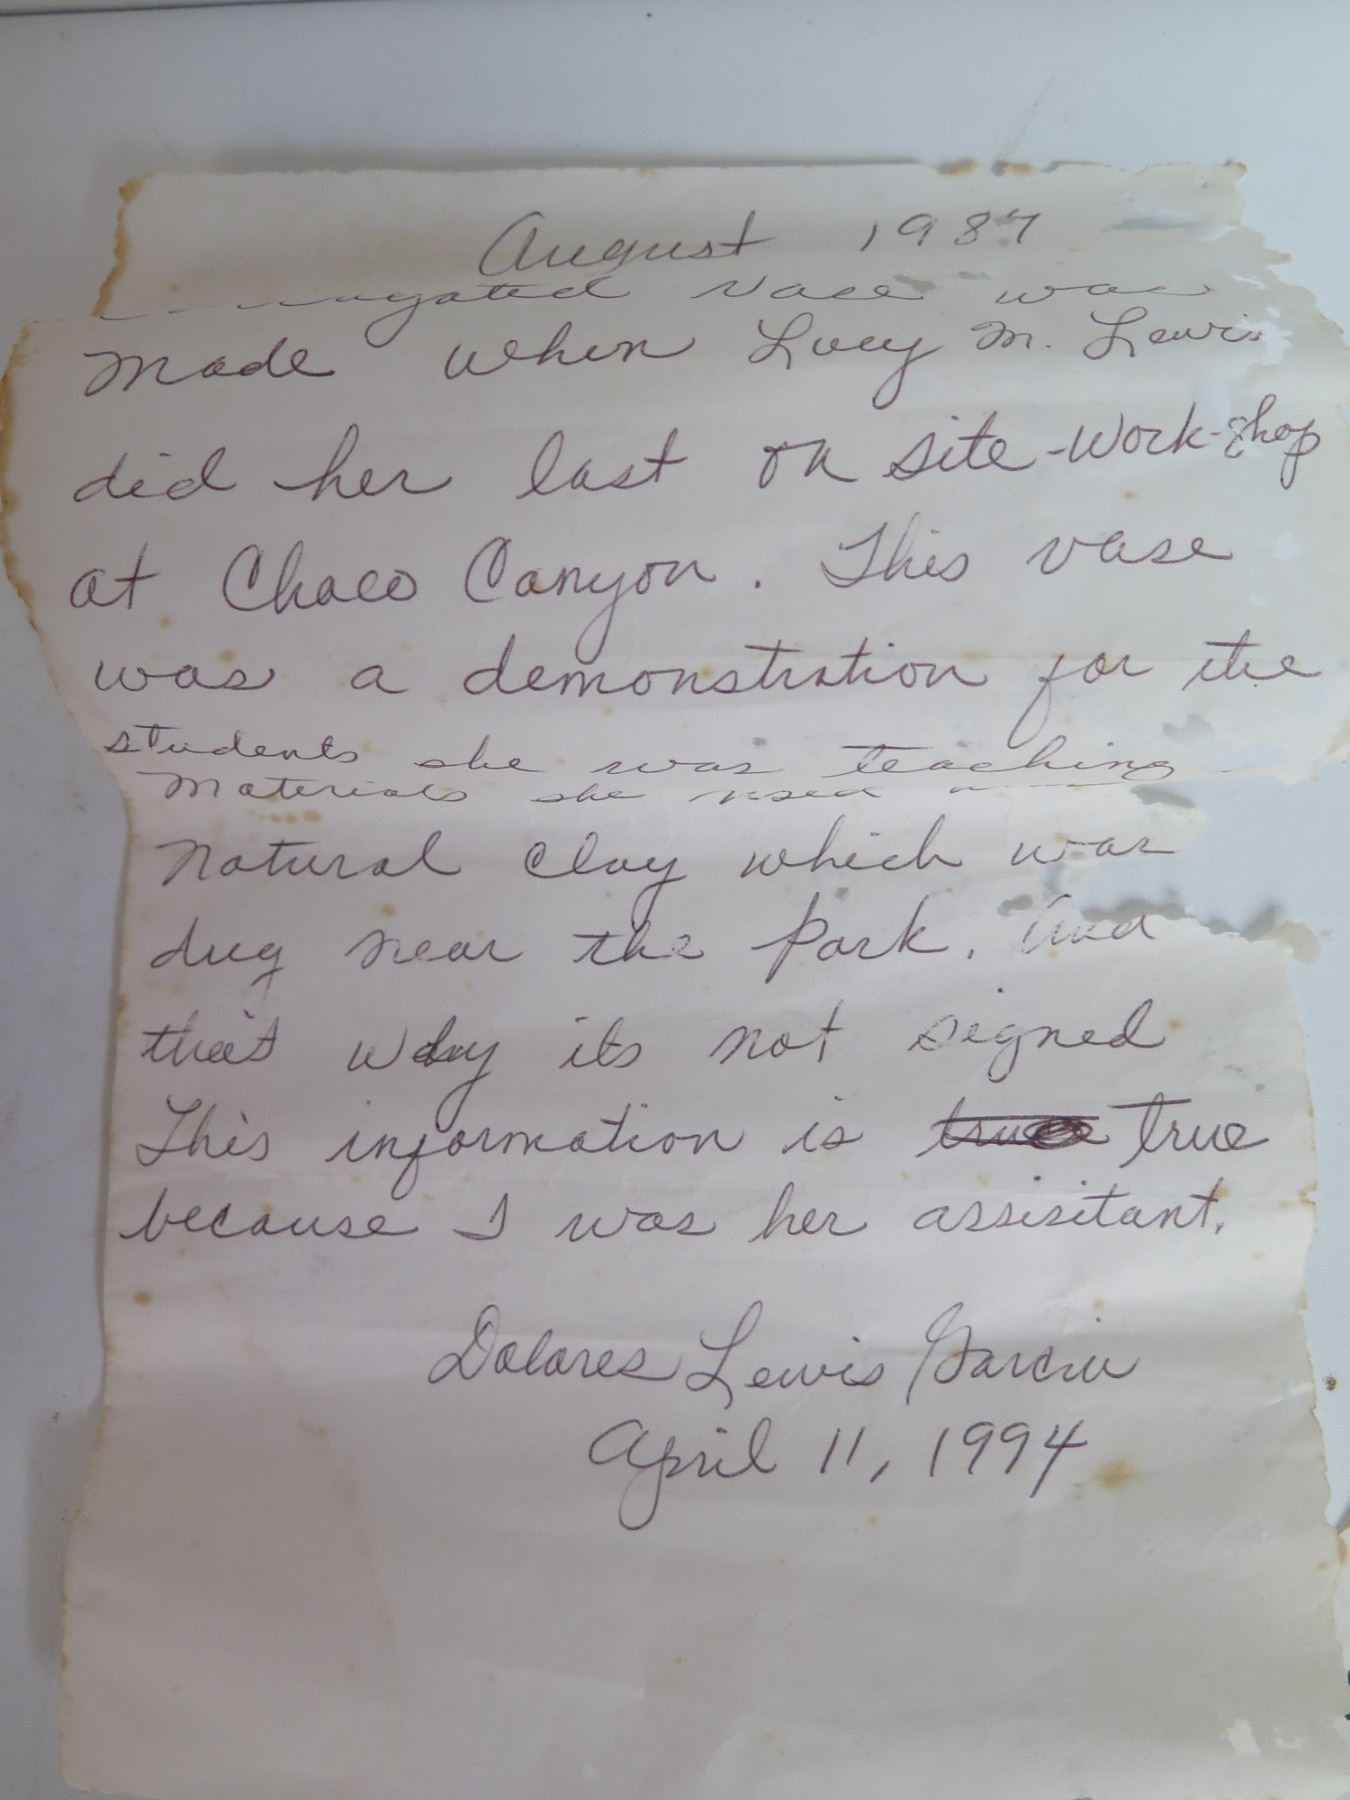 August 1987
vase was
made when Lucy M. Lewis
did her last on site-work-shop
at Chaco Canyon. This vase
was a demonstration for the
students she was teaching
Materials she used
natural clay which was
dug near the park. And
that why its not signed
This information is true
because I was her assisitant.
Dolores Lewis Garcia
April 11, 1994